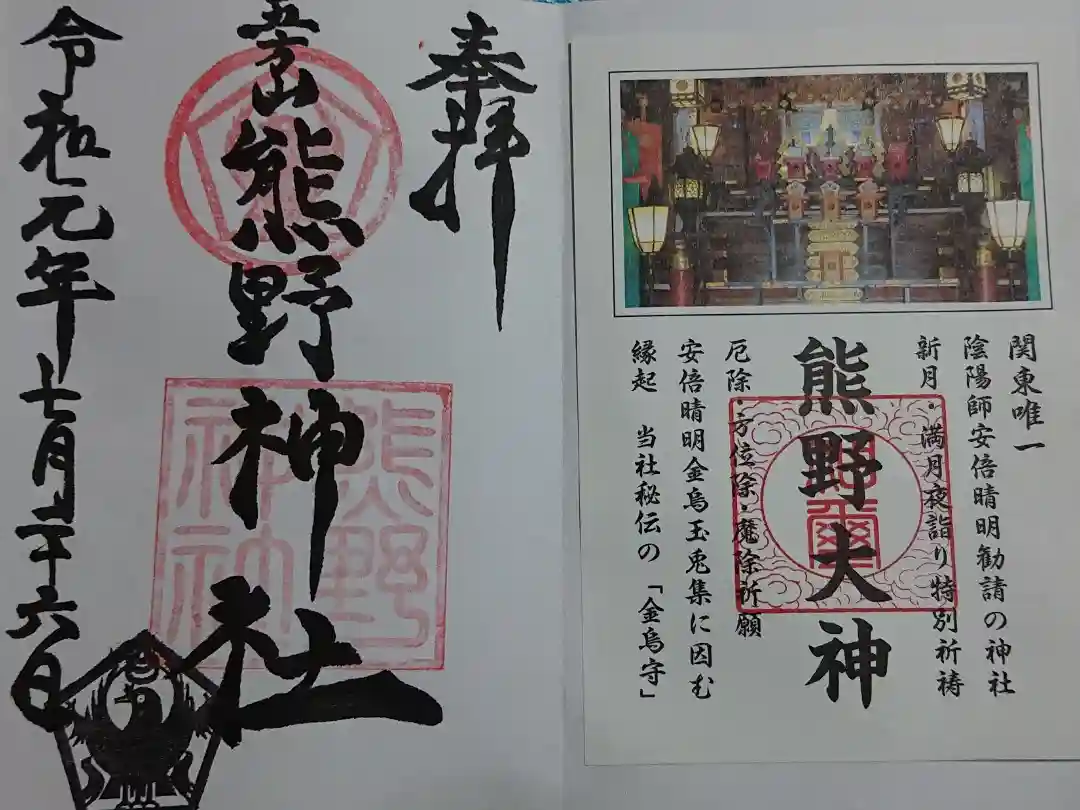 関東唯一
陰陽師安倍晴明勧請の神社
新月・満月夜詣り特別祈祷
熊野大神
厄除・方位除・魔除祈願
安倍晴明金烏玉兎集に因む
縁起　当社秘伝の「金烏守」
奉拝
五方山熊野神社
熊野
令和元年七月二十六日